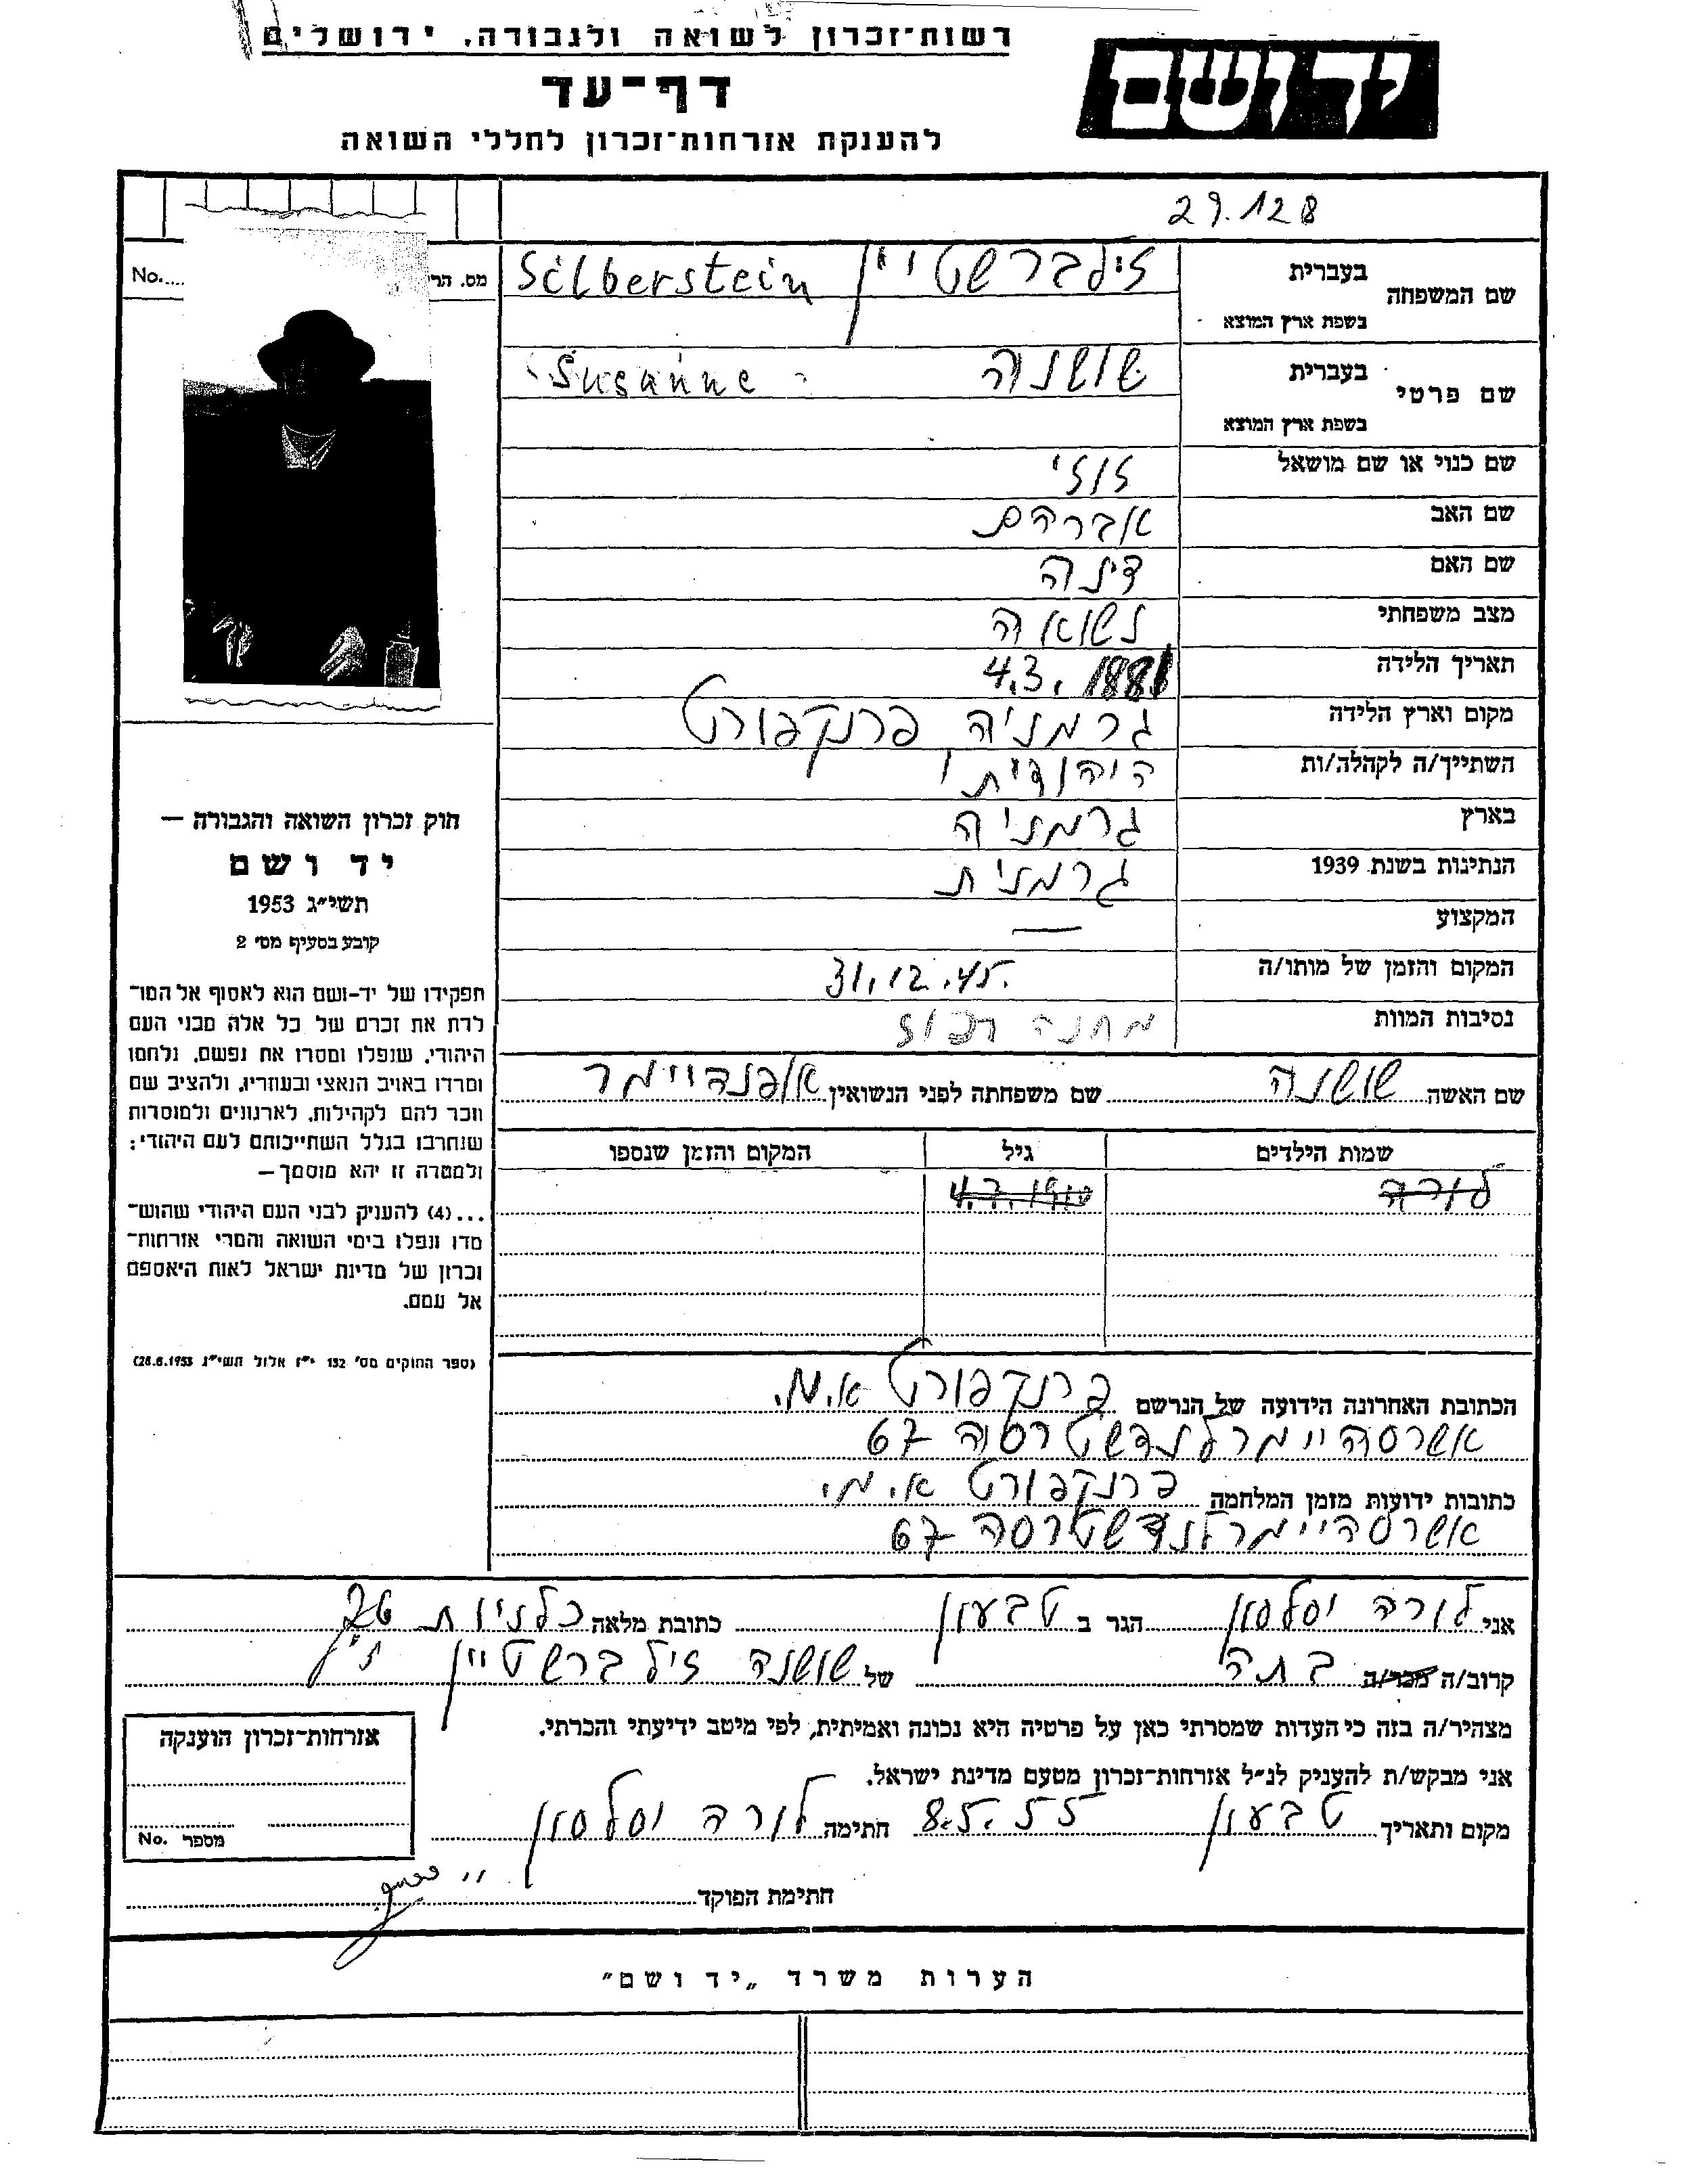 רשות־זכרון לשואה ולגבורה, ירושלים
יד ושם
דף־עד
להענקת אזרחות־זכרון לחללי השואה
29.128
No..... מס. הר
שם המשפחה בעברית זילברשטיין Silberstein
בשפת ארץ המוצא
שם פרטי בעברית שושנה Susanne
בשפת ארץ המוצא
שם כנוי או שם מושאל זוזי
שם האב אברהם
שם האם דינה
מצב משפחתי נשואה
תאריך הלידה 4.3.1881
מקום וארץ הלידה גרמניה, פרנקפורט
השתייך/ה לקהלה/ות היהודית
בארץ גרמניה
הנתינות בשנת 1939 גרמנית
המקצוע —
המקום והזמן של מותו/ה 31.12.45.
נסיבות המוות מחנה רכוז
שם האשה שושנה שם משפחתה לפני הנשואין אופנהיימר
שמות הילדים גיל המקום והזמן שנספו
לורה
הכתובת האחרונה הידועה של הנרשם פרנקפורט א.מ.
67
כתובות ידועות מזמן המלחמה פרנקפורט א.מ.
67
חוק זכרון השואה והגבורה —
יד ושם
תשי״ג 1953
קובע בסעיף מס׳ 2
תפקידו של יד-ושם הוא לאסוף אל המו־
לדת את זכרם של כל אלה מבני העם
היהודי, שנפלו ומסרו את נפשם, נלחמו
ומרדו באויב הנאצי ובעוזריו, ולהציב שם
וזכר להם לקהילות, לארגונים ולמוסדות
שנחרבו בגלל השתייכותם לעם היהודי;
ולמטרה זו יהא מוסמך—
...(4) להעניק לבני העם היהודי שהוש־
מדו ונפלו בימי השואה והמרי אזרחות־
זכרון של מדינת ישראל לאות היאספם
אל עמם.
(ספר החוקים מס׳ 132 י״ז אלול תשי״ג 28.8.1953)
אני לורה הגר ב טבעון כתובת מלאה כלניות 26
קרוב/ה מכר/ה בתה של שושנה זילברשטיין ז״ל
מצהיר/ה בזה כי העדות שמסרתי כאן על פרטיה היא נכונה ואמיתית, לפי מיטב ידיעתי והכרתי.
אני מבקש/ת להעניק לנ״ל אזרחות־זכרון מטעם מדינת ישראל.
מקום ותאריך טבעון 8.5.55 חתימה לורה
חתימת הפוקד
אזרחות־זכרון הוענקה
No. מספר
הערות משרד „יד ושם״